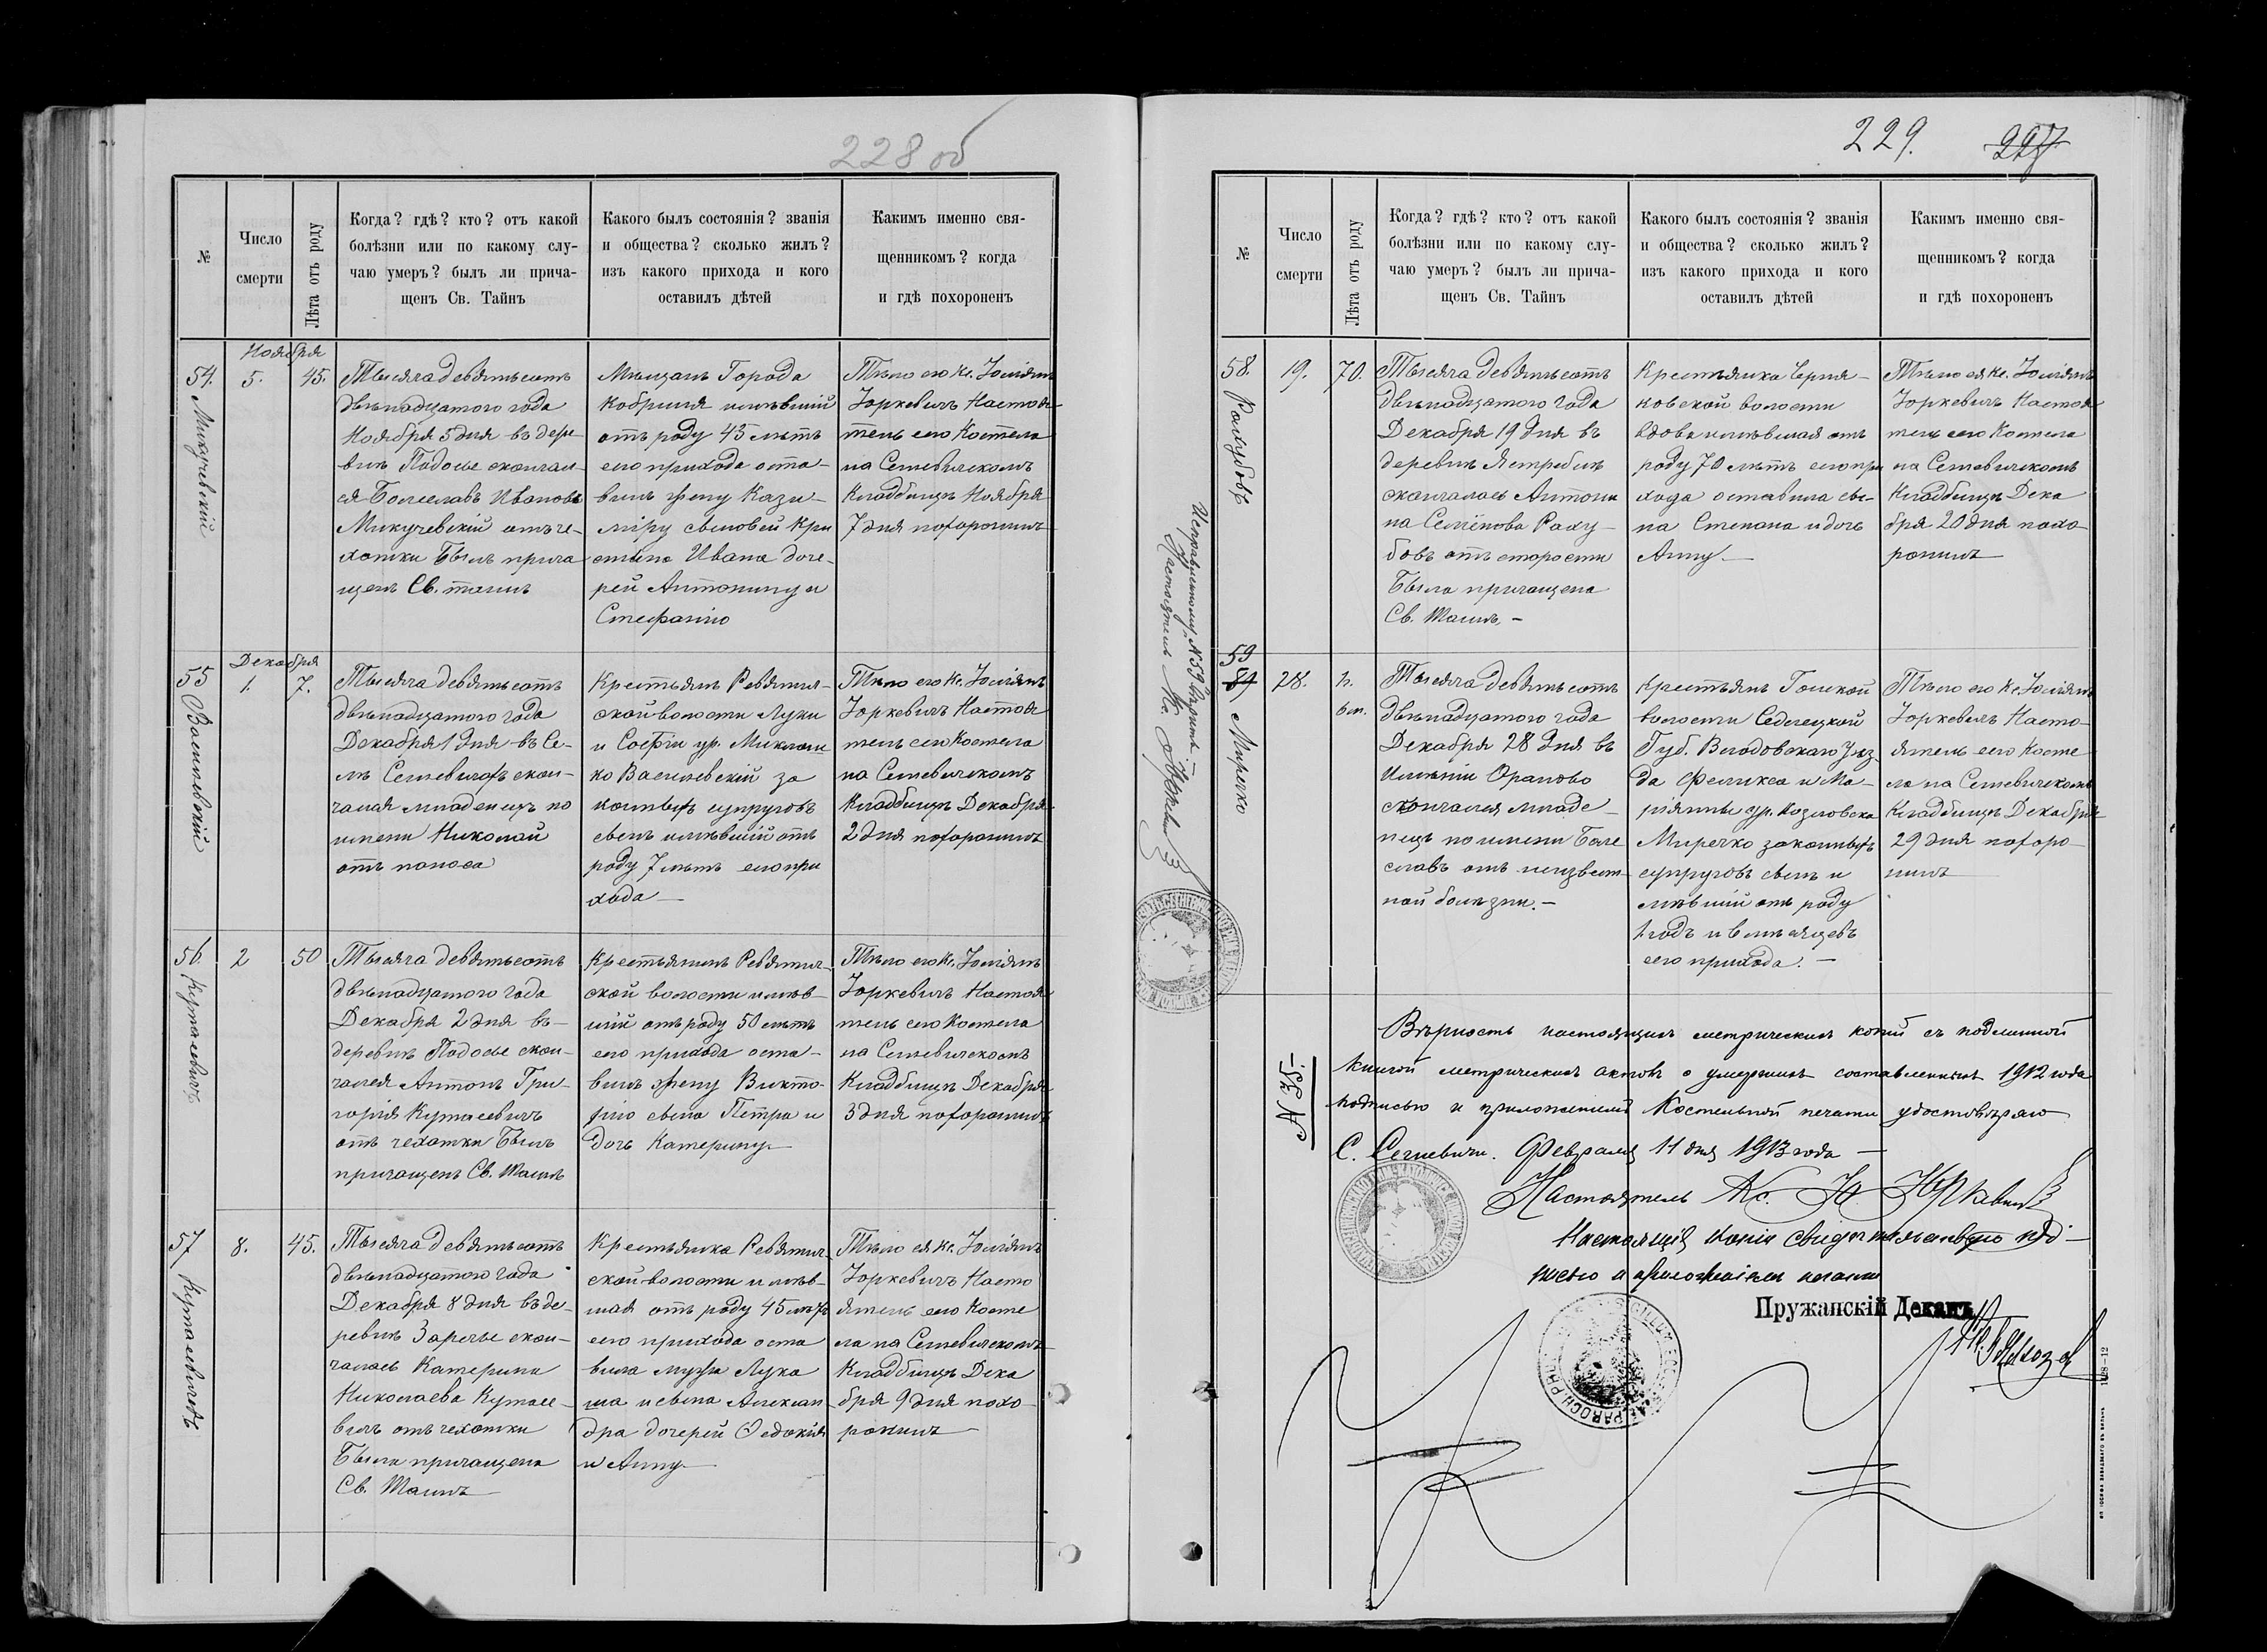 228 об
№
Число
смерти
Лѣта отъ роду
Когда? гдѣ? кто? отъ какой
болѣзни или по какому слу-
чаю умеръ? былъ ли прича-
щенъ Св. Тайнъ
Какого былъ состоянія? званія
и общества? сколько жилъ?
изъ какого прихода и кого
оставилъ дѣтей
Какимъ именно свя-
щенникомъ? когда
и гдѣ похороненъ
Ноября
54.
Микучевскій
5.
45.
Тысяча девятьсотъ
двѣнадцатого года
Ноября 5 дня въ дере-
внѣ Подосье скончал-
ся Болеславъ Ивановъ
Микучевскій отъ че-
хотки Былъ прича
щенъ Св. таинъ
Мѣщанъ Города
Кобриня имѣвшій
отъ роду 45 лѣтъ
сего прихода оста-
вилъ жену Кази-
міру сыновей Кри
стына Ивана доче-
рей Антонину и
Стефанію
Тѣло его Кс. Юліянъ
Юркевичъ Настоя
тель сего Костела
на Сегневическомъ
Кладбищѣ Ноября
7 дня похоронилъ
Декабря
55
Василевскій
1.
7.
Тысяча девятьсотъ
двѣнадцатого года
Декабря 1 дня въ Се-
лѣ Сегневичахъ скон-
чался младенецъ по
имени Николай
отъ поноса
Крестьянъ Ревятич-
ской волости Луки
и Софіи ур. Миклаш
ко Василевскій за
конныхъ супруговъ
сынъ имѣвшій отъ
роду 7 лѣтъ сего при
хода
Тѣло его Кс. Юліянъ
Юркевичъ Настоя
тель сего Костела
на Сегневическомъ
Кладбищѣ Декабря
2 дня похоронилъ
56
Кутасевичъ
2
50
Тысяча девятьсотъ
двѣнадцатого года
Декабря 2 дня въ
деревнѣ Подосье скон-
чался Антонъ Гри-
горія Кутасевичъ
отъ чехотки Былъ
причащенъ Св. Таинъ
Крестьянинъ Ревятич-
ской волости имѣв-
шій отъ роду 50 лѣтъ
сего прихода оста-
вилъ жену Викто-
рію сына Петра и
дочь Катерину
Тѣло его Кс. Юліянъ
Юркевичъ Настоя
тель сего Костела
на Сегневическомъ
Кладбищѣ Декабря
3 дня похоронилъ
57
Кутасевичевъ
8.
45.
Тысяча девятьсотъ
двѣнадцатого года
Декабря 8 дня въ де-
ревнѣ Заречье скон-
чалась Катерина
Николаева Кутасе-
вичъ отъ чехотки
Была причащена
Св. Таинъ
Крестьянка Ревятич-
ской волости имѣв-
шая отъ роду 45 лѣтъ
сего прихода оста
вила мужа Лука
ша и сына Алексан-
дра дочерей Федокія
и Анну
Тѣло ея Кс. Юліянъ
Юркевичъ Насто
ятель сего Косте
ла на Сегневическомъ
Кладбищѣ Дека
бря 9 дня похо-
ронилъ
229. 227
№
Число
смерти
Лѣта отъ роду
Когда? гдѣ? кто? отъ какой
болѣзни или по какому слу-
чаю умеръ? былъ ли прича-
щенъ Св. Тайнъ
Какого былъ состоянія? званія
и общества? сколько жилъ?
изъ какого прихода и кого
оставилъ дѣтей
Какимъ именно свя-
щенникомъ? когда
и гдѣ похороненъ
58.
Рахубовъ
19.
70.
Тысяча девятьсотъ
двѣнадцатого года
Декабря 19 дня въ
деревнѣ Ястребль
скончалась Антони
на Семёнова Раху-
бовъ отъ старости
Была причащена
Св. Таинъ.-
Крестьянка Черня-
ковской волости
вдова имѣвшая отъ
роду 70 лѣтъ сего при
хода оставила сы-
на Степана и дочь
Анну.-
Тѣло ея Кс. Юліянъ
Юркевичъ Настоя
тель сего Костела
на Сегневическомъ
Кладбищѣ Дека
бря 20 дня похо-
ронилъ
Исправленному № 59 вѣрить
Настоятель Кс. Юркевичъ
59
Миречко
28.
Тысяча девятьсотъ
двѣнадцатого года
Декабря 28 дня въ
Имѣніи Ораново
скончался младе-
нецъ по имени Боле
славъ отъ неизвест-
ной болѣзни.-
Крестьянъ
волости Седлецкой
Губ. Влодовскаго Уѣз
да Феликса и Ма-
ріянны ур. Козловска
Миречко законныхъ
супруговъ сынъ и
мѣвшій отъ роду
1 годъ и 6 мѣсяцевъ
сего прихода.-
Тѣло его Кс. Юліянъ
Юркевичъ Насто-
ятель сего Косте
ла на Сегневическомъ
Кладбищѣ Декабря
29 дня похоро-
нилъ
№ 35.-
Вѣрность настоящихъ метрическихъ копій съ подлинной
книгой метрическихъ актовъ о умершихъ составленныхъ 1912 года
подписью и приложеніемъ Костельной печати удостовѣряю
С. Сегневичи. Февраля 11 дня 1913 года -
Настоятель Кс. Ю. Юркевичъ
Настоящія копіи свидѣтельствую под-
писью и приложеніемъ печати
Пружанскій Деканъ